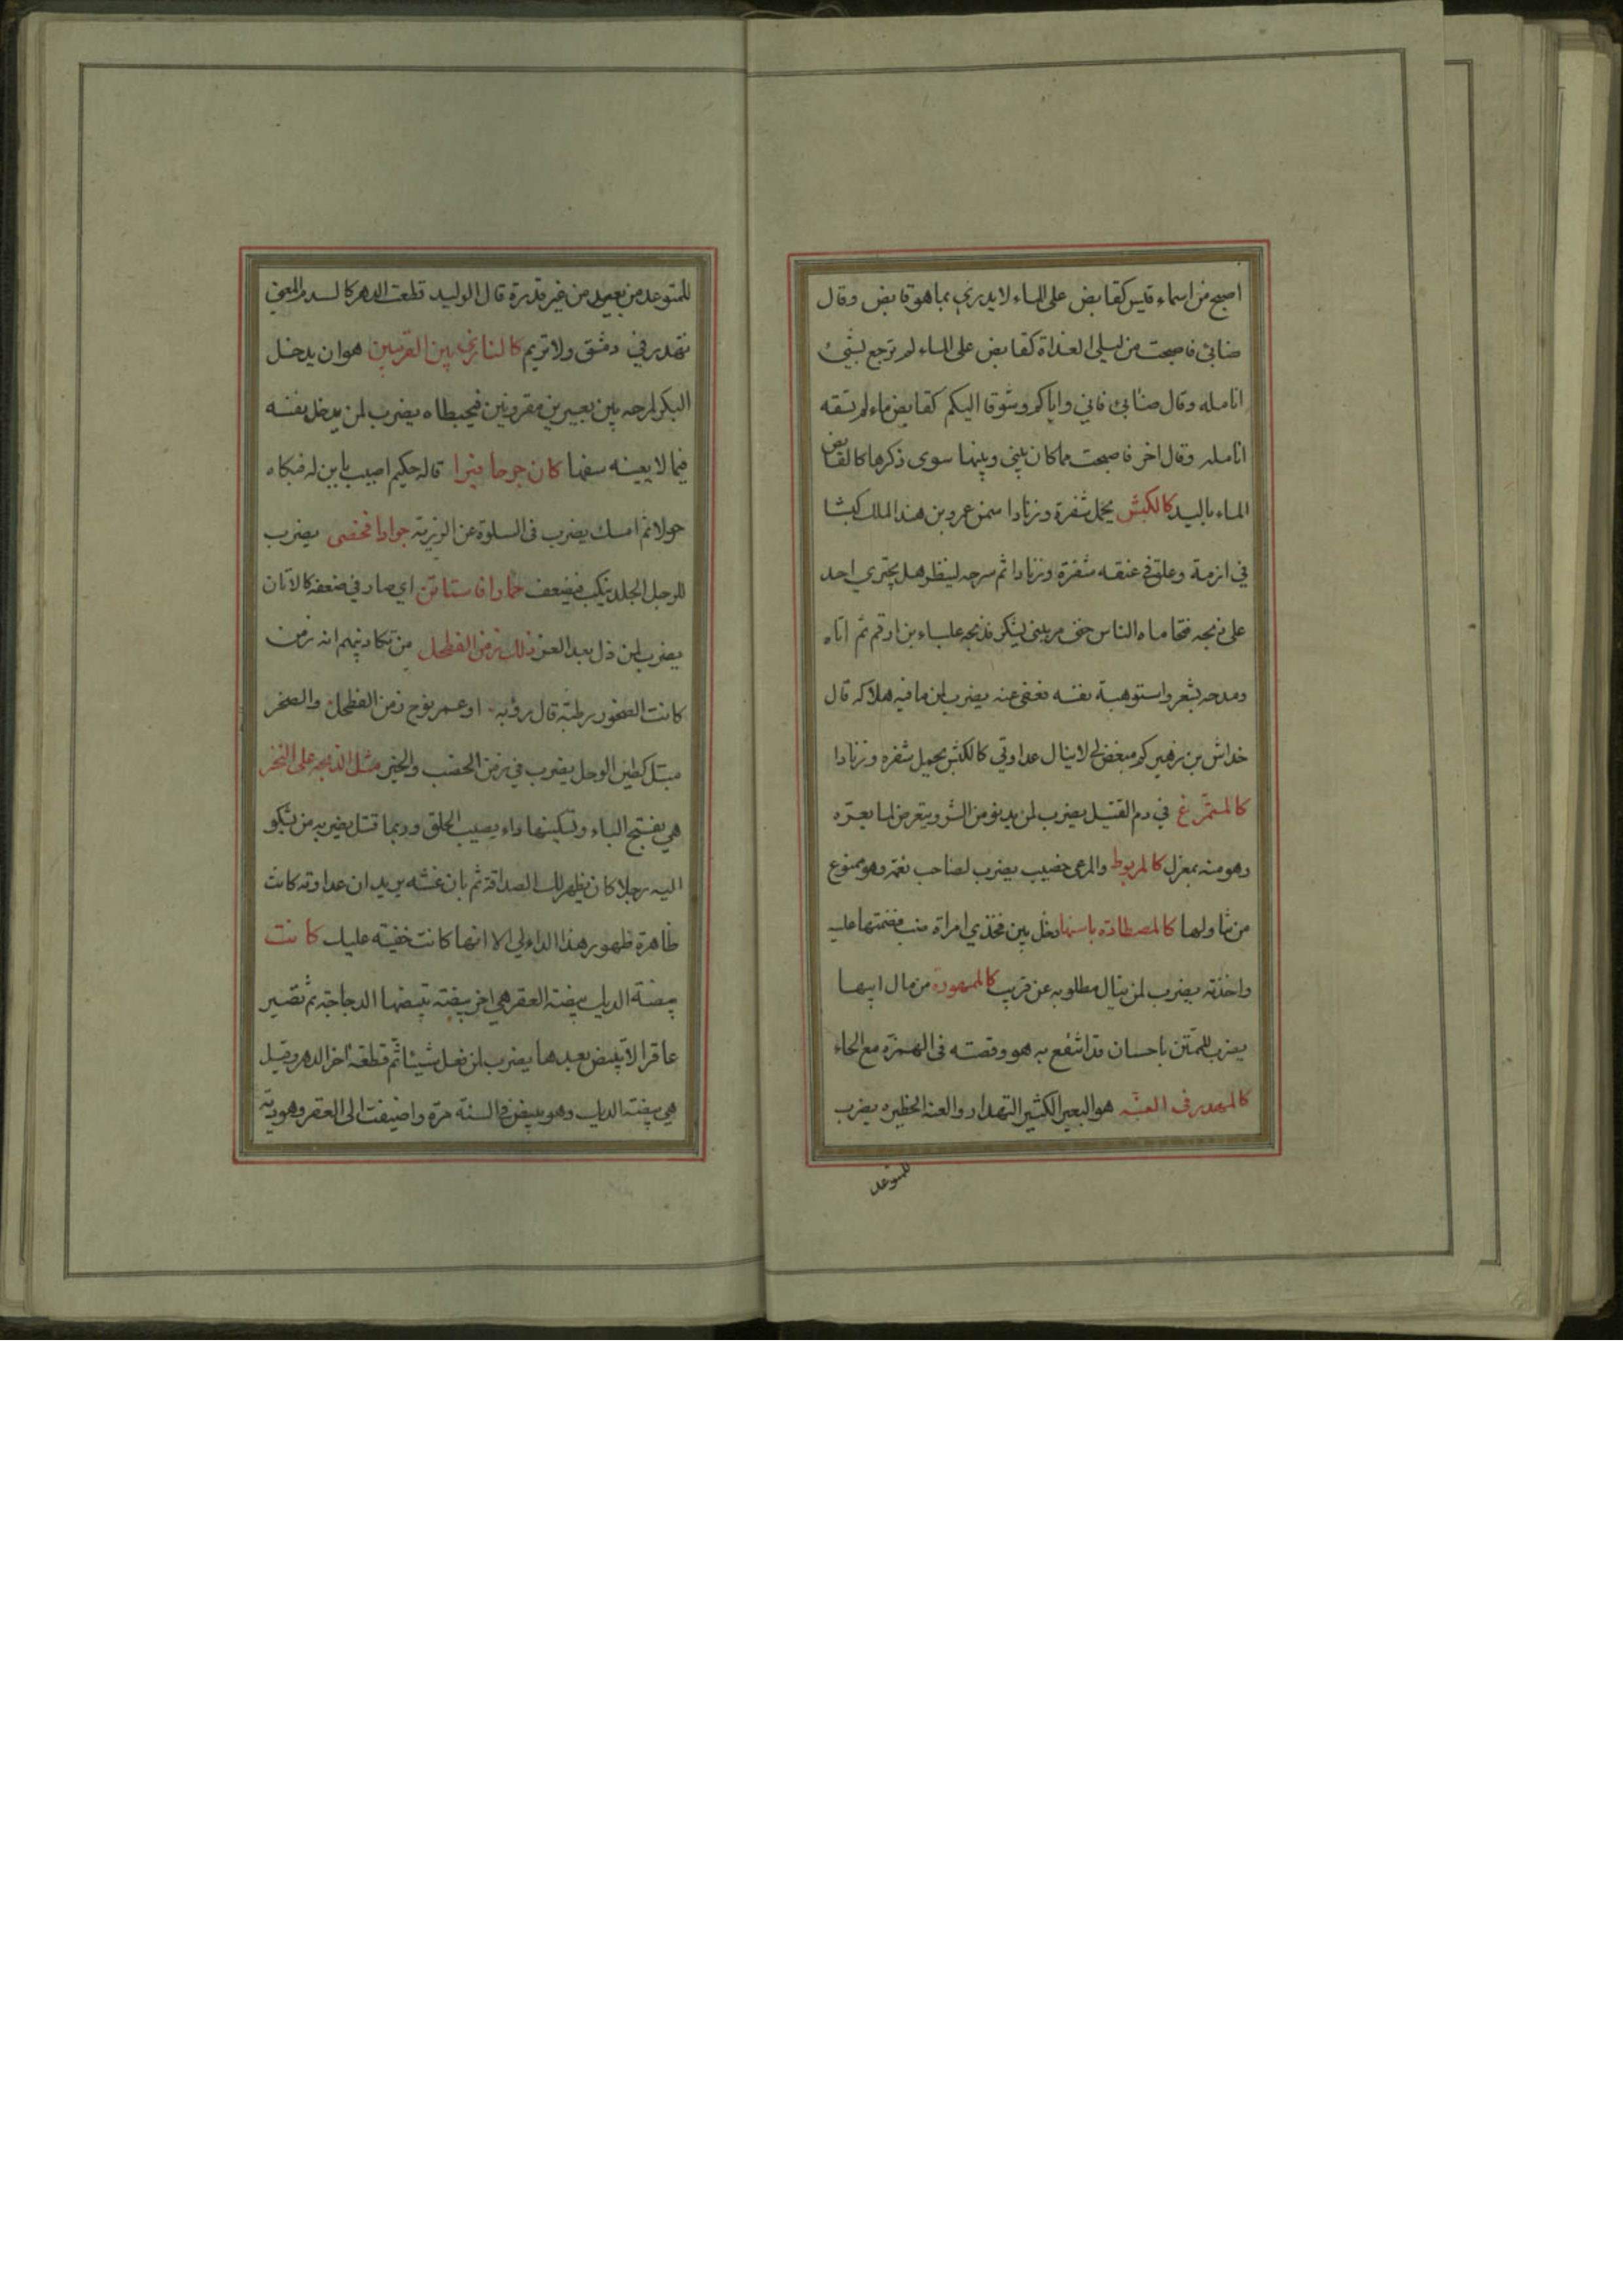 اصبح من اسماء قيس كقابض على الماء لا يدري بما هو قابض وقال
ضابئ فاصبحت من ليلى الغداة كقابض على الماء لم ترجع بشيء
انامله وقال ضابئ فاني واياكم وشوقا اليكم كقابض ماء لم تسقه
انامله وقال اخر فاصبحت مما كان بيني وبينها سوى ذكرها كالقابض
الماء باليد كالكبش يحمل شفرة وزنادا سمن عمرو بن هند الملك كبشا
في ازمة وعلق في عنقه شفرة وزنادا ثم سرحه لينظر هل يجتري احد
على ذبحه فتحاماه الناس حتى مر ببني يشكر فذبحه علباء بن ارقم ثم اتاه
ومدحه بشعر واستوهبة نفسه فعفى عنه يضرب لمن ما فيه هلاكه قال
خداش بن زهير كم مبغض لي لا ينال عداوتي كالكبش يحمل شفره وزنادا
كالمتمرغ في دم القتيل يضرب لمن يدنو من الشر ويتعرض لما يعرّه
وهو منه بمعزل كالمربوط والمرعى خصيب يضرب لصاحب نعمة وهو ممنوع
من تناولها كالمصطادة باستها دخل بين فخذي امراة ضب فضمتها عليه
واخذته يضرب لمن ينال مطلوبه عن قريب كالممهورة من مال ابيها
يضرب للممتن باحسان قد انتفع به هو وقصته في الهمزة مع الحاء
كالمهدر في العنه هو البعير الكثير التهدار والعنه الحظيره يضرب
للمتوعد
للمتوعد من بعيد من غير قدرة قال الوليد قطعت الدهر كالسدم المعنى
تهدر في دمشق ولا تريم كالنازي بين القرينين هو ان يدخل
البكر لمرحه بين بعيرين مقرونين فيخبطاه يضرب لمن يدخل نفسه
فيما لا يعنيه سفها كان جرحا فبرا قاله حكيم اصيب بابن له فبكاه
حولا ثم امسك يضرب في السلوة عن الرزية جوادا فخصى يضرب
للرجل الجلد ينكب فيضعف حمارا فاستاتن اي صار في ضعفه كالاتان
يضرب لمن ذل بعد العز ذلك زمن الفطحل من تكاذيبهم انه زمن
كانت الصخور رطبة قال رؤبه او عمر نوح زمن الفطحل والصخر
مبتل كطين الوحل يضرب في زمن الخصب والخير مثل الذبحه على النحر
هي بفتح الباء وتسكينها داء يصيب الحلق وربما قتل يضربه من تشكو
اليه رجلا كان يظهر لك الصداقة ثم بان غشه يريد ان عداوته كانت
ظاهرة ظهور هذا الداء لي الا انها كانت خفية عليك كانت
بيضة الديك بيضة العقر هي اخر بيضة تبيضها الدجاجة ثم تصير
عاقرا لا تبيض بعدها يضرب لمن فعل شيئا ثم قطعه اخر الدهر وقيل
هي بيضة الديك وهو يبيض في السنة مرة واضيفت الى العقر وهو